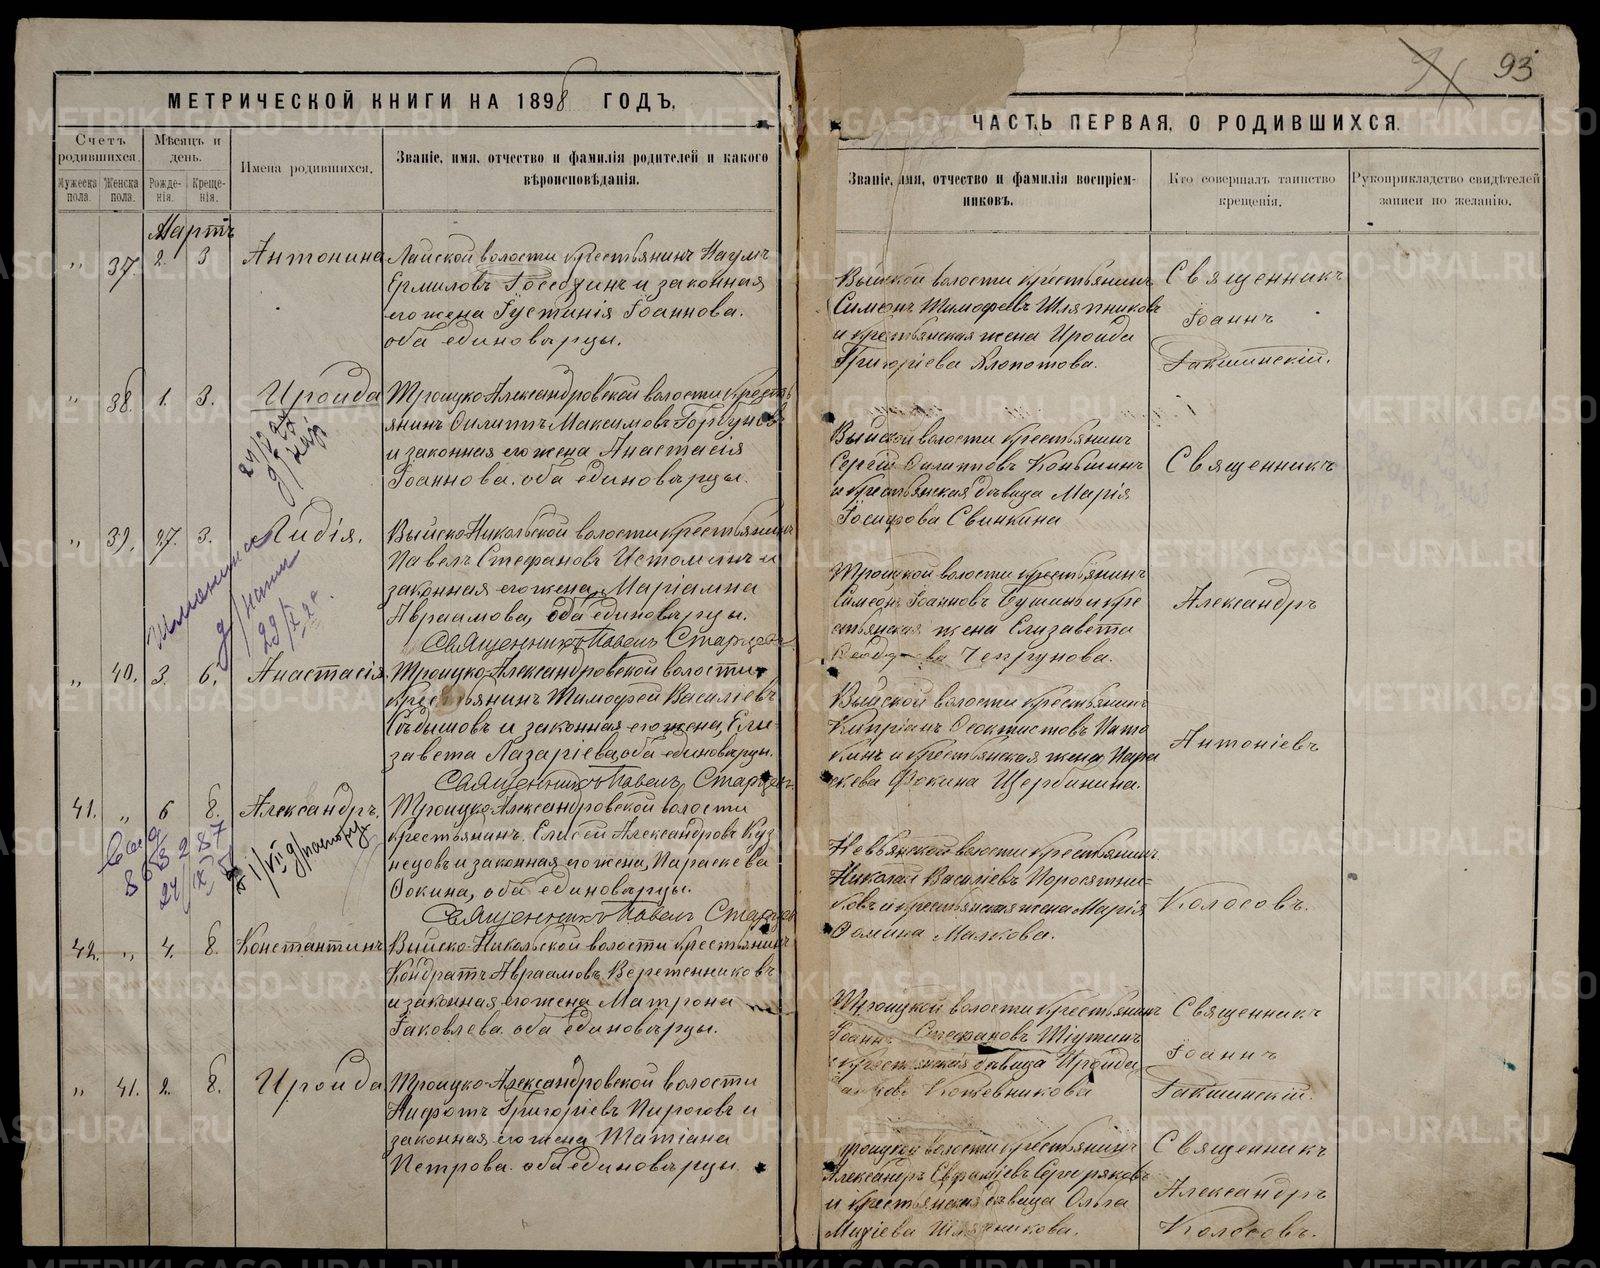 93
МЕТРИЧЕСКОЙ КНИГИ НА 1898 ГОДЪ.
Счетъ родившихся.
Мѣсяцъ и день.
Имена родившихся.
Званіе, имя, отчество и фамилія родителей и какого вѣроисповѣданія.
Мужеска пола.
Женска пола.
Рожде-нія.
Креще-нія.
Мартъ
„ 37. 2. 3 Антонина Лайской волости крестьянинъ Наумъ
Ермиловъ и законная
его жена Іустинія Іоаннова.
оба единовѣрцы.
„ 38. 1. 3. Ироида Троицко-Александровской волости кресть
янинъ Филиппъ Максимовъ Горбуновъ
и законная его жена Анастасія
Іоаннова. оба единовѣрцы.
„ 39. 27. 3. Лидія. Выйско-Никольской волости крестьянинъ
Павелъ Стефановъ Истоминъ и
законная его жена Маріамна
Авраамова, оба единовѣрцы.
Священникъ Павелъ Старцевъ
„ 40. 3. 6. Анастасія. Троицко-Александровской волости
крестьянинъ Тимофей Василіевъ
и законная его жена, Ели-
завета Лазаріева, оба единовѣрцы.
Священникъ Павелъ Старцевъ
41. „ 6 8. Александръ. Троицко-Александровской волости
крестьянинъ Елисей Александровъ Куз
нецовъ и законная его жена, Параскева
Фокина, оба единовѣрцы.
Священникъ Павелъ Старцевъ
42. „ 4. 8. Константинъ Выйско-Никольской волости крестьянинъ
Кондратъ Авраамовъ Веретенниковъ
и законная его жена Матрона
Іаковлева. оба единовѣрцы.
„ 41. 2. 8. Ироида Троицко-Александровской волости
Нифонтъ Григоріевъ Пироговъ и
законная его жена Татіана
Петрова. оба единовѣрцы.
ЧАСТЬ ПЕРВАЯ, О РОДИВШИХСЯ.
Званіе, имя, отчество и фамилія воспріем-никовъ.
Кто совершалъ таинство крещенія.
Рукоприкладство свидѣтелей записи по желанію.
Выйской волости крестьянинъ
Симеонъ Тимофеевъ Шляпниковъ
и крестьянская жена Ироида
Григоріева Хлопотова.
Священникъ
Іоаннъ
Гакшинскій.
Выйской волости крестьянинъ
Сергій Филипповъ Коньшинъ
и крестьянская дѣвица Марія
Іосифова Свинкина
Священникъ
Троицкой волости крестьянинъ
Симеонъ Іоанновъ и кре
стьянская жена Елизавета
Чепрунова.
Александръ
Выйской волости крестьянинъ
Кипріанъ Феоктистовъ
и крестьянская жена Пара
скева Фокина Щербинина.
Антоніевъ
Невьянской волости крестьянинъ
Николай Василіевъ Поросятни-
ковъ и крестьянская жена Марія
Фомина Малкова.
Колосовъ.
Троицкой волости крестьянинъ
Іоаннъ Стефановъ
крестьянская дѣвица Ироида
Кожевникова
Священникъ
Іоаннъ
Гакшинскій.
Троицкой волости крестьянинъ
Александръ
и крестьянская дѣвица Ольга
Священникъ
Александръ
Колосовъ.
METRIKI.GASO-URAL.RU